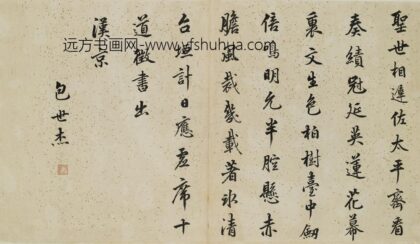 聖世相逢佐太平齊看
奏績冠延英蓮花幕
裏文生色柏樹臺中劍
倍鳴明允半腔懸赤
膽風裁幾載著冰清
台垣計日應虛席十
道徵書出
漢京
包世杰
远方书画网-www.yfshuhua.com